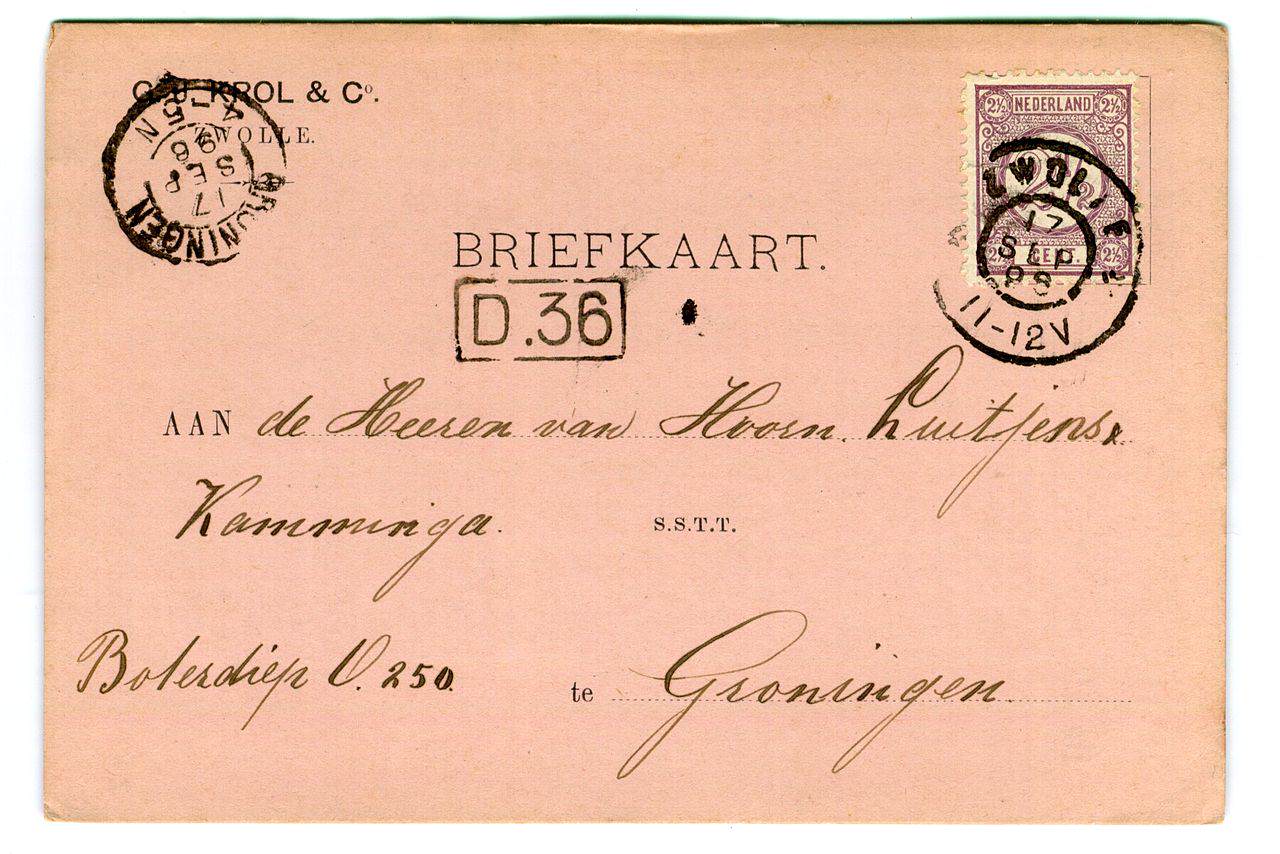 G. J. KROL & Co.
ZWOLLE.
GRONINGEN
17
SEP
98
4-5N
2½ NEDERLAND 2½
2½
2½ CENT. 2½
ZWOLLE
17
SEP
98
11-12V
BRIEFKAART.
D.36
AAN de Heeren van Hoorn. Luitjens &
Kamminga. S.S.T.T.
Boterdiep O. 250. te Groningen.